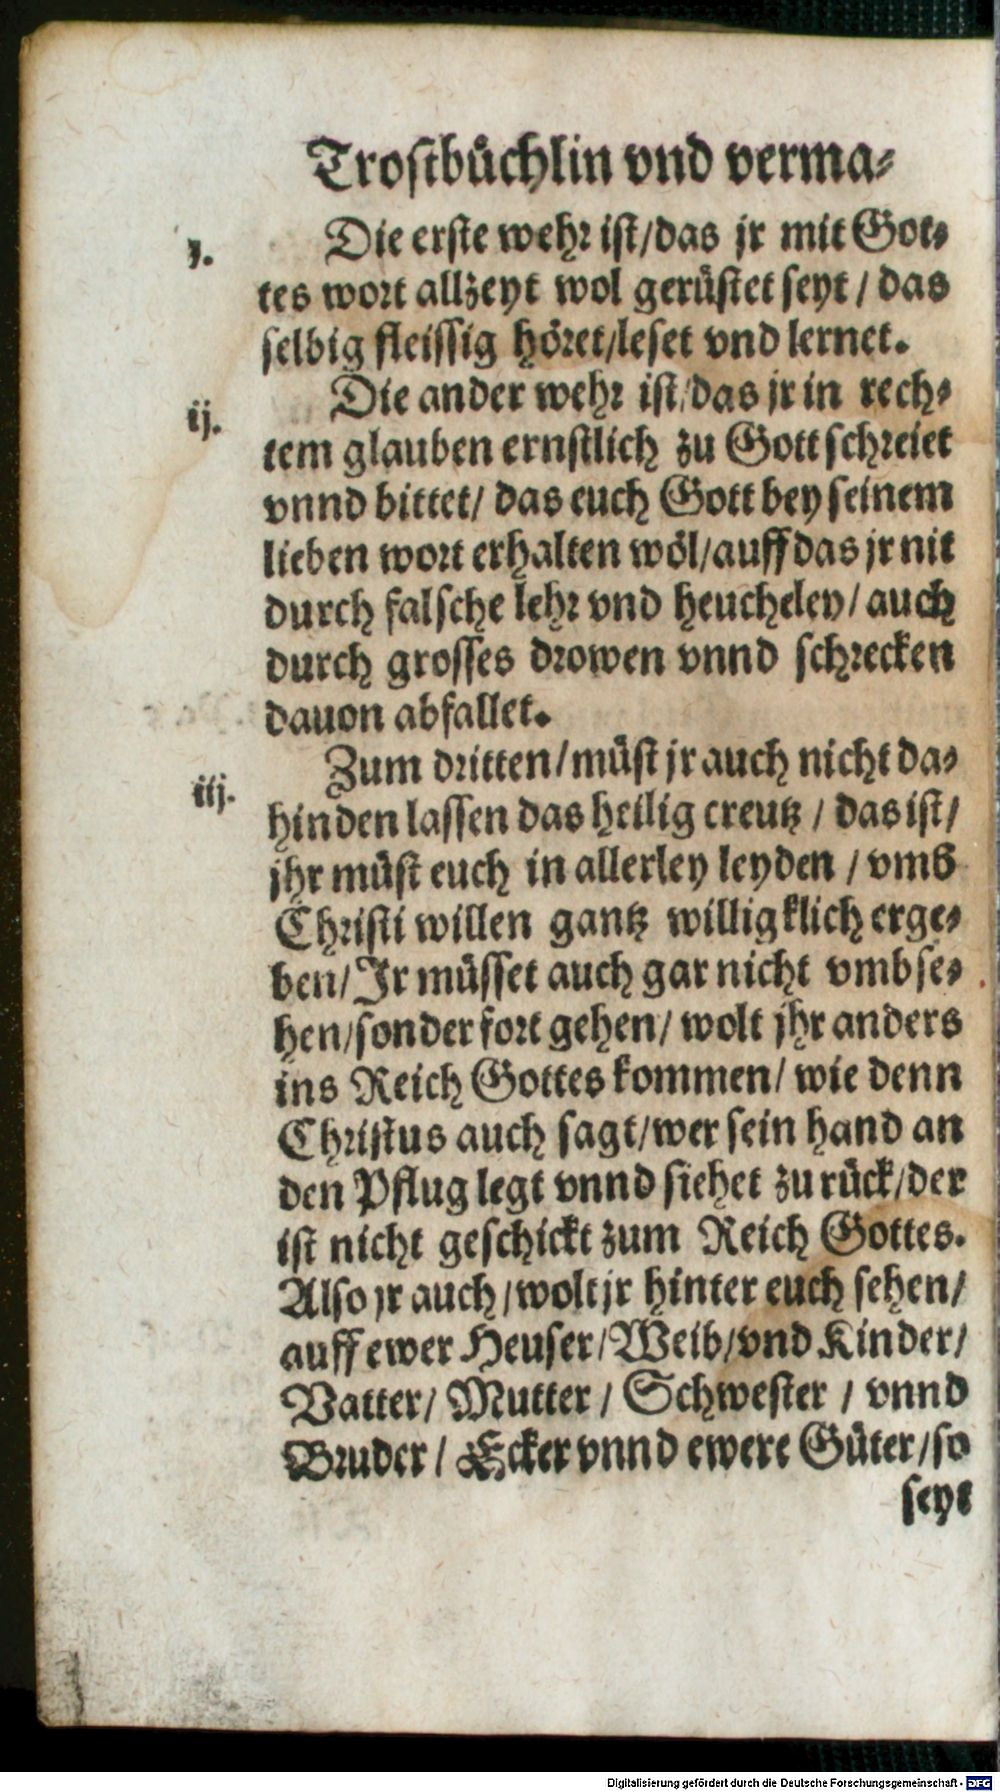 Trostbüchlin vnd verma⸗
j. Die erste wehr ist/das jr mit Got⸗
tes wort allzeyt wol gerüstet seyt / das
selbig fleissig höret/leset vnd lernet.
ij. Die ander wehr ist/das jr in rech⸗
tem glauben ernstlich zu Gott schreiet
vnnd bittet/ das euch Gott bey seinem
lieben wort erhalten wöl/auff das jr nit
durch falsche lehr vnd heucheley/ auch
durch grosses drowen vnnd schrecken
dauon abfallet.
iij. Zum dritten/müst jr auch nicht da⸗
hinden lassen das heilig creutz / das ist/
jhr müst euch in allerley leyden / vmb
Christi willen gantz willigklich erge⸗
ben/Ir müsset auch gar nicht vmbse⸗
hen/sonder fort gehen/ wolt jhr anders
ins Reich Gottes kommen/ wie denn
Christus auch sagt/wer sein hand an
den Pflug legt vnnd siehet zu rück/der
ist nicht geschickt zum Reich Gottes.
Also jr auch/wolt jr hinter euch sehen/
auff ewer Heuser/Weib/vnd Kinder/
Vatter/ Mutter / Schwester / vnnd
Bruder / Ecker vnnd ewere Güter/so
seyt
Digitalisierung gefördert durch die Deutsche Forschungsgemeinschaft - DFG